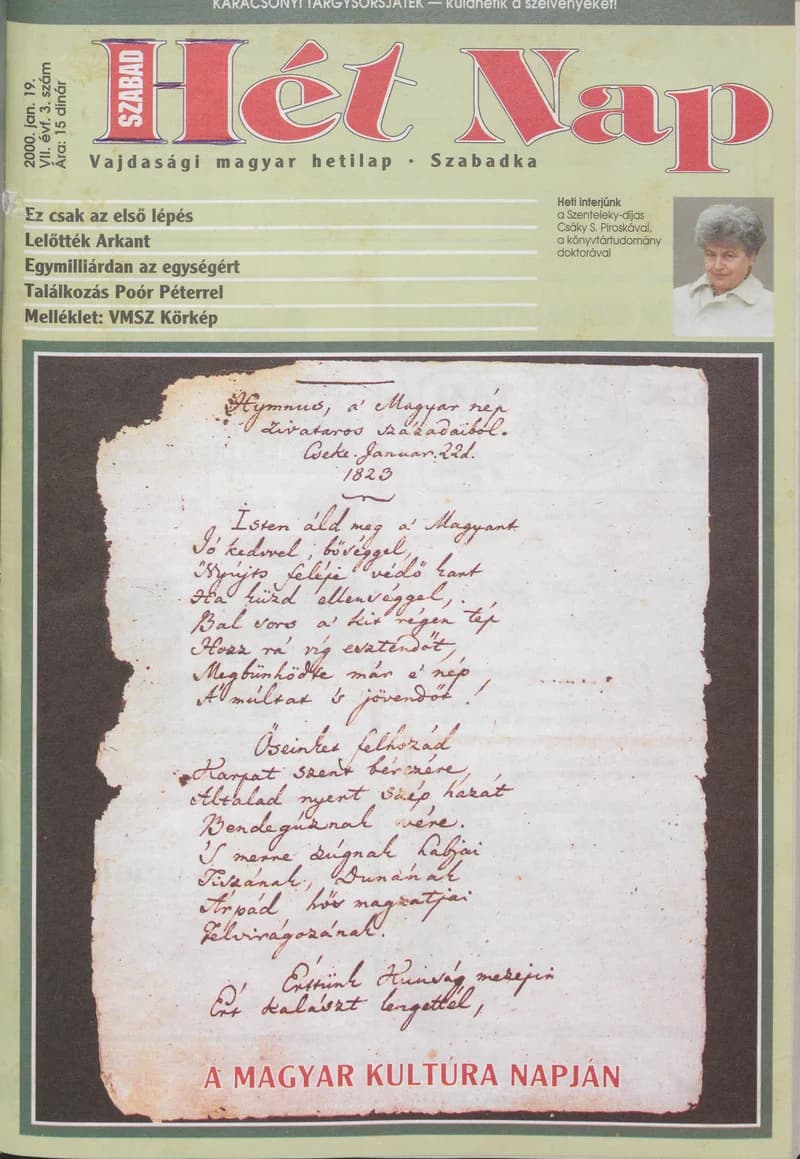 KARÁCSONYI TÁRGYSORSJÁTÉK — küldhetik a szelvényeket!
2000. jan. 19.
VII. évf. 3. szám
Ára: 15 dinár
SZABAD
Hét Nap
Vajdasági magyar hetilap · Szabadka
Ez csak az első lépés
Lelőtték Arkant
Egymilliárdan az egységért
Találkozás Poór Péterrel
Melléklet: VMSZ Körkép
Heti interjúnk
a Szenteleky-díjas
Csáky S. Piroskával,
a könyvtártudomány
doktorával
Hymnus, a' Magyar nép
zivataros századaiból.
Cseke. Januar. 22d.
1823
Isten áld meg a' Magyart
Jó kedvvel, bőséggel,
Nyújts feléje védő kart
Ha küzd ellenséggel,
Bal sors a' kit régen tép
Hozz rá víg esztendőt,
Megbűnhödte már e' nép
A' múltat 's jövendőt!
Őseinket felhozád
Kárpát szent bérczére
Általad nyert szép hazát
Bendegúznak vére.
'S merre zúgnak habjai
Tiszának, Dunának
Árpád hős magzatjai
Felvirágozának.
Értünk Kunság mezejin
Ért kalászt lengettél,
A MAGYAR KULTÚRA NAPJÁN